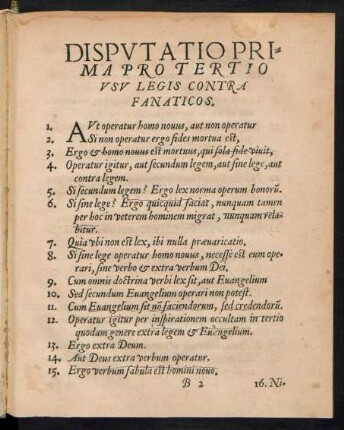 DISPVTATIO PRI-
MA PRO TERTIO
VSV LEGIS CONTRA
FANATICOS.
1. AVt operatur homo nouus, aut non operatur
2. Si non operatur ergo fides mortua est,
3. Ergo & homo nouus est mortuus, qui sola fide viuit,
4. Operatur igitur, aut secundum legem, aut sine lege, aut
contra legem.
5. Si secundum legem? Ergo lex norma operum bonorũ.
6. Si sine lege? Ergo quicquid faciat, nunquam tamen
per hoc in veterem hominem migrat, nunquam rela-
bitur.
7. Quia vbi non est lex, ibi nulla præuaricatio.
8. Si sine lege operatur homo nouus, necesse est eum ope-
rari, sine verbo & extra verbum Dei.
9. Cum omnis doctrina verbi lex sit, aut Euangelium
10. Sed secundum Euangelium operari non potest.
11. Cum Euangelium sit nõ faciendorum, sed credendorũ.
12. Operatur igitur per inspirationem occultam in tertio
quodam genere extra legem & Euangelium.
13. Ergo extra Deum.
14. Aut Deus extra verbum operatur.
15. Ergo verbum fabula est homini nouo.
B 2 16. Ni-